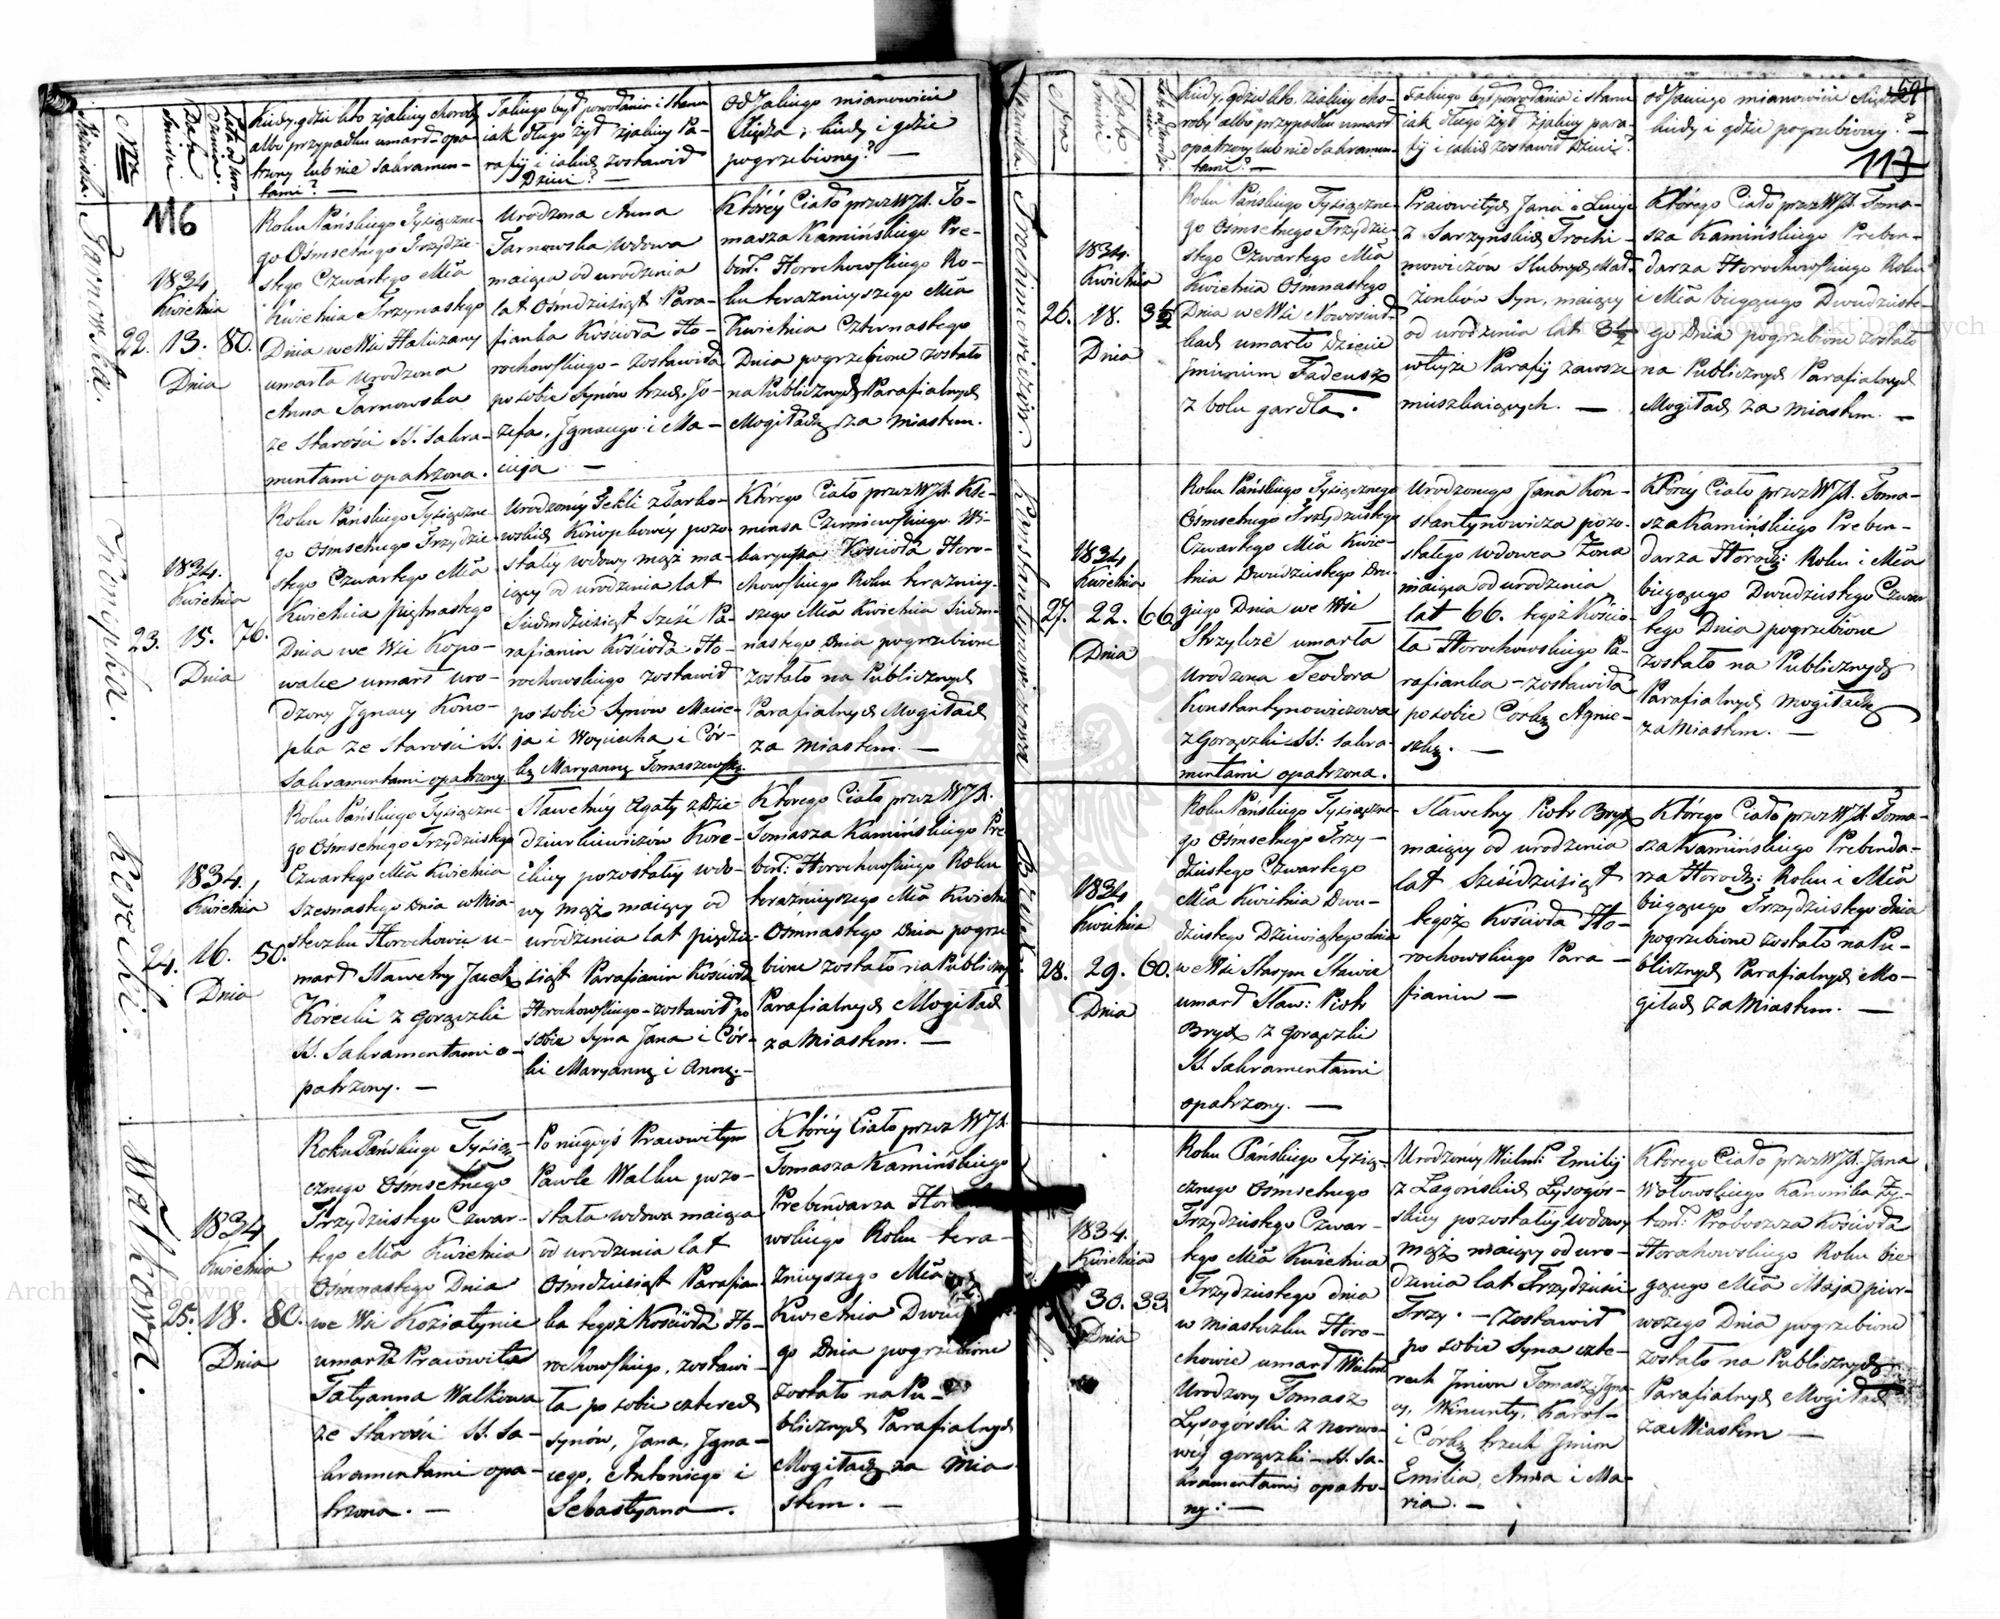 Nazwiska.
Nra
Data
śmierci
Lata od uro-
dzenia.
Kiedy, gdzie lub z jakiey choroby
albo przypadku umarł opa-
trzony lub nie Sakramen-
tami? —
Jakiego był powołania i stanu
jak długo żył z jakiey Pa-
rafij i jakie zostawił
Dzieci? —
Od Jakiego mianowicie
Księdza, kiedy i gdzie
pogrzebiony? —
116
Tarnowska.
22.
1834
Kwietnia
13.
Dnia
80.
Roku Pańskiego Tysiączne-
go Ośmsetnego Trzydzie-
stego Czwartego Mca
Kwietnia Trzynastego
Dnia we Wsi Haliczany
umarła Urodzona
Anna Tarnowska
ze Starości SS. Sakra-
mentami opatrzona.
Urodzona Anna
Tarnowska Wdowa
maiąca od urodzenia
lat Ośmdziesiąt Para-
fianka Kościoła Ho-
rochowskiego – zostawiła
po sobie Synów trzech, Jo-
zefa, Jgnacego i Ma-
cieja —
Któréy Ciało przez WJX. To-
masza Kamińskiego Pre-
ben: Horochowskiego Ro-
ku teraznieyszego Mca
Kwietnia Czternastego
Dnia pogrzebione zostało
na Publicznych Parafialnych
Mogiłach za Miastem.
Konopka.
23.
1834.
Kwietnia
15.
Dnia
76.
Roku Pańskiego Tysiączne-
go Ośmsetnego Trzydzie-
stego Czwartego Mca
Kwietnia piętnastego
Dnia we Wsi Kopo-
walce umarł Uro-
dzony Jgnacy Kono-
pka ze Starości SS.
Sakramentami opatrzony
Urodzonéy Tekli z Żarko-
wskich Konopkowéy pozo-
stałéy wdowy mąż ma-
iący od urodzenia lat
Siedmdziesiąt Sześć Pa-
rafianin Kościoła Ho-
rochowskiego zostawił
po sobie Synów Macie-
ja i Woyciecha i Cór-
kę Maryannę Tomaszewską
Którego Ciało przez WJX. Kle-
mensa Czerniewskiego Wi-
karyusza Kościoła Horo-
chowskiego Roku teraznieÿ-
szego Mca Kwietnia Siedm-
nastego Dnia pogrzebione
zostało na Publicznych
Parafialnych Mogiłach
za Miastem. —
Korecki.
24.
1834.
Kwietnia
16.
Dnia
50.
Roku Pańskiego Tysiączne-
go Ośmsetnego Trzydziestego
Czwartego Mca Kwietnia
Szesnastego Dnia w Mia-
steczku Horochowie u-
marł Sławetny Jacek
Korecki z gorączki
SS. Sakramentami o-
patrzony. —
Sławetnéy Agaty z Dzie-
Kore-
ckiey pozostałéy wdo-
wy mąż maiący od
urodzenia lat pięćdzie-
siąt Parafianin Kościoła
Horochowskiego – zostawił po
sobie Syna Jana i Cór-
ki Maryannę i Annę. –
Którego Ciało przez WJX.
Tomasza Kamińskiego Pre
ben: Horochowskiego Roku
teraźnieyszego Mca Kwietnia
Ośmnastego Dnia pogrze
bione zostało na Publicznych
Parafialnych Mogiłach
za Miastem. —
Walkowa.
25.
1834
Kwietnia
18.
Dnia
80.
Roku Pańskiego Tysią-
cznego Ośmsetnego
Trzydziestego Czwar-
tego Mca Kwietnia
Ośmnastego Dnia
we Wsi Koziatynie
umarła Pracowita
Tatyanna Walkowa
ze Starości SS. Sa-
kramentami opa-
trzona. —
Po niegdyś Pracowitym
Pawle Walku pozo-
stała wdowa maiąca
od urodzenia lat
Ośmdziesiąt Parafian-
ka tegoż Kościoła Ho-
rochowskiego, zostawi-
ła po sobie czterech
Synów, Jana, Jgna-
cego, Antoniego i
Sebastyana —.
Któréy Ciało przez WJX.
Tomasza Kamińskiego
Prebendarza Horo
wskiego Roku tera-
znieyszego Mca
Kwietnia Dwud
go Dnia pogrzebione
zostało na Pu-
blicznych Parafialnych
Mogiłach za Mia-
stem. —
Nazwiska.
Nra
Data
śmierci
Kiedy, gdzie lub z jakiey cho-
roby albo przypadku umarł
opatrzony lub nie Sakramen-
tami? —
Jakiego był powołania i stanu
jak długo żył z jakiey para-
fij i jakie zostawił Dzieci?
Od Jakiego mianowicie Księdza
kiedy i gdzie pogrzebiony? —
59
117
Trochimowiczów.
26.
1834.
Kwietnia
18.
Dnia
3½
Roku Pańskiego Tysiączne-
go Ośmsetnego Trzydzie-
stego Czwartego Mca
Kwietnia Osmnastego
Dnia we Wsi Nowosiuł-
kach umarło Dziecie
Jmieniem Tadeusz
z bolu gardła.
Pracowitych Jana i Łucyi
z Sarzyńskich Trochi-
mowiczów Slubnych Mał-
żonków Syn, maiący
od urodzenia lat 3½
w teyże Parafij zawsze
mieszkaiących. —
Którego Ciało przez WJX. Toma-
sza Kamińskiego Preben-
darza Horochowskiego Roku
i Mca bieżącego Dwudzieste-
go Dnia pogrzebione zostało
na Publicznych Parafialnych
Mogiłach za Miastem. —
Konstantynowiczowa
27.
1834
Kwietnia
22.
Dnia
66.
Roku Pańskiego Tysiącznego
Ośmsetnego Trzydziestego
Czwartego Mca Kwie-
tnia Dwudziestego Dru-
giego Dnia we Wsi
Strzylcze umarła
Urodzona Teodora
Konstantynowiczowa
z Gorączki SS: Sakra-
mentami opatrzona.
Urodzonego Jana Kon-
stantynowicza pozo-
stałego wdowca Żona
maiąca od urodzenia
lat 66. tegoż Kościo-
ła Horochowskiego Pa-
rafianka – zostawiła
po sobie Córkę Agnie-
szkę. —
Któréy Ciało przez WJX. Toma-
sza Kamińskiego Preben-
darza Horoch: Roku i Mca
bieżącego Dwudziestego Czwar
tego Dnia pogrzebione
zostało na Publicznych
Parafialnych Mogiłach
za Miastem. —
Brych.
28.
1834
Kwietnia
29.
Dnia
60.
Roku Pańskiego Tysiączne-
go Ośmsetnego Trzy-
dziestego Czwartego
Mca Kwietnia Dwu-
dziestego Dziewiątego dnia
we Wsi Starym Stawie
umarł Sław: Piotr
Brych z gorączki
SS. Sakramentami
opatrzony. —
Sławetny Piotr Brych
maiący od urodzenia
lat Sześćdziesiąt
tegoż Kościoła Ho-
rochowskiego Para-
fianin —
Którego Ciało przez WJX. Toma-
sza Kamińskiego Prebenda-
rza Horoch: Roku i Mca
bieżącego Trzydziestego dnia
pogrzebione zostało na Pu-
blicznych Parafialnych Mo-
giłach za Miastem. —
1834.
Kwietnia
30.
Dnia
33
Roku Pańskiego Tysią-
cznego Ośmsetnego
Trzydziestego Czwar-
tego Mca Kwietnia
Trzydziestego dnia
w Miasteczku Horo-
chowie umarł Wielm:
Urodzony Tomasz
Łysogorski z nerwo-
wéy gorączki – SS. Sa-
kramentami opatrzo-
ny: —
Urodzonéy Wielm: Emilij
z Zagorskich Łysogór-
skiey pozostałéy wdowy
mąż maiący od uro-
dzenia lat Trzydzieści
Trzy. — Zostawił
po sobie Syna czte-
rech Jmion Tomasz, Jgna-
cy, Wincenty, Karol –
i Corkę trzech Jmion
Emilia, Anna i Ma-
ria. —
Którego Ciało przez WJX. Jana
Wołowskiego Kanonika Ży-
tom: Proboszcza Kościoła
Horochowskiego Roku bie
żącego Mca Maja pier-
wszego Dnia pogrzebione
zostało na Publicznych
Parafialnych Mogiłach
za Miastem —
Archiwum Główne Akt Dawnych
Archiwum Główne Akt